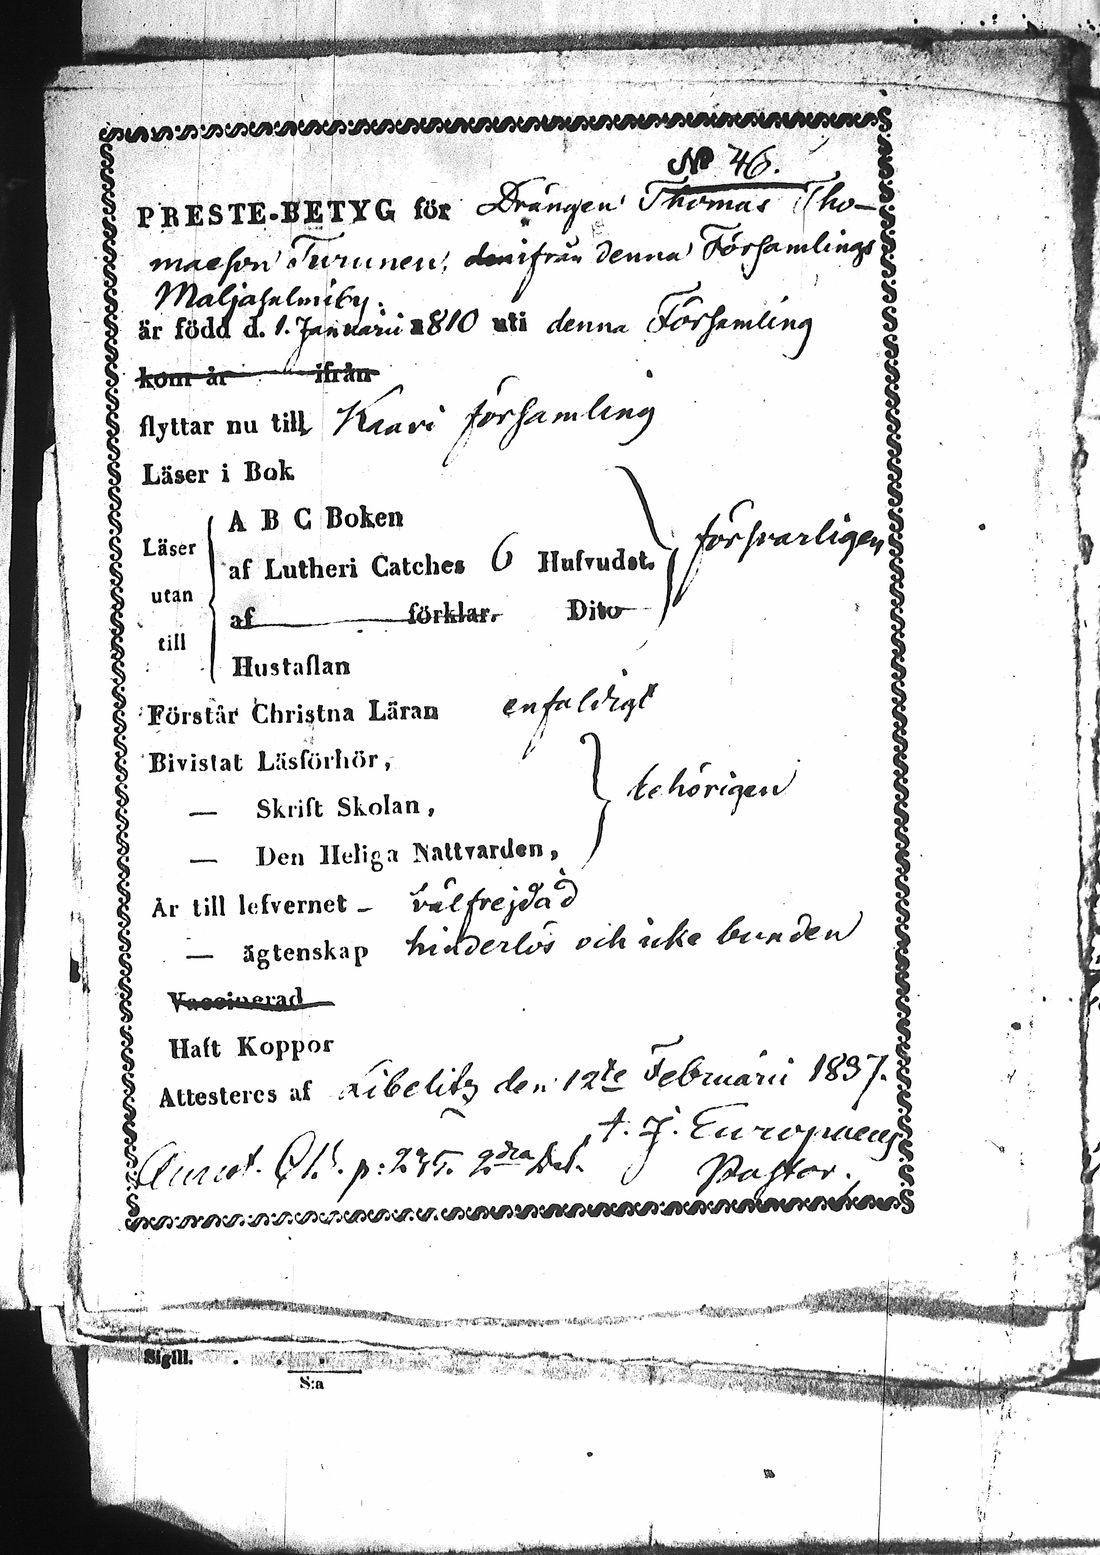 No 46.
PRESTE-BETYG för Drängen Thomas Tho-
maeson Turunen, ifrån denna Församlings
Maljasalmiby.
är född d. 1. Januarii 1810 uti denna Församling
kom år ifrån
flyttar nu till Kaavi församling
Läser i Bok
A B C Boken
Läser utan till
af Lutheri Catches 6 Hufvudst. försvarligen
af förklar. Dito
Hustaflan
Förstår Christna Läran enfaldigt
Bivistat Läsförhör,
— Skrift Skolan, behörigen
— Den Heliga Nattvarden,
Är till lefvernet - välfrejdad
— ägtenskap hinderlös och icke bunden
Vaccinerad
Haft Koppor
Attesteras af Libelitz den 12te Februarii 1837.
A. J. Europaeus
Pastor.
p: 235. 2dra
Sigill.
S:a